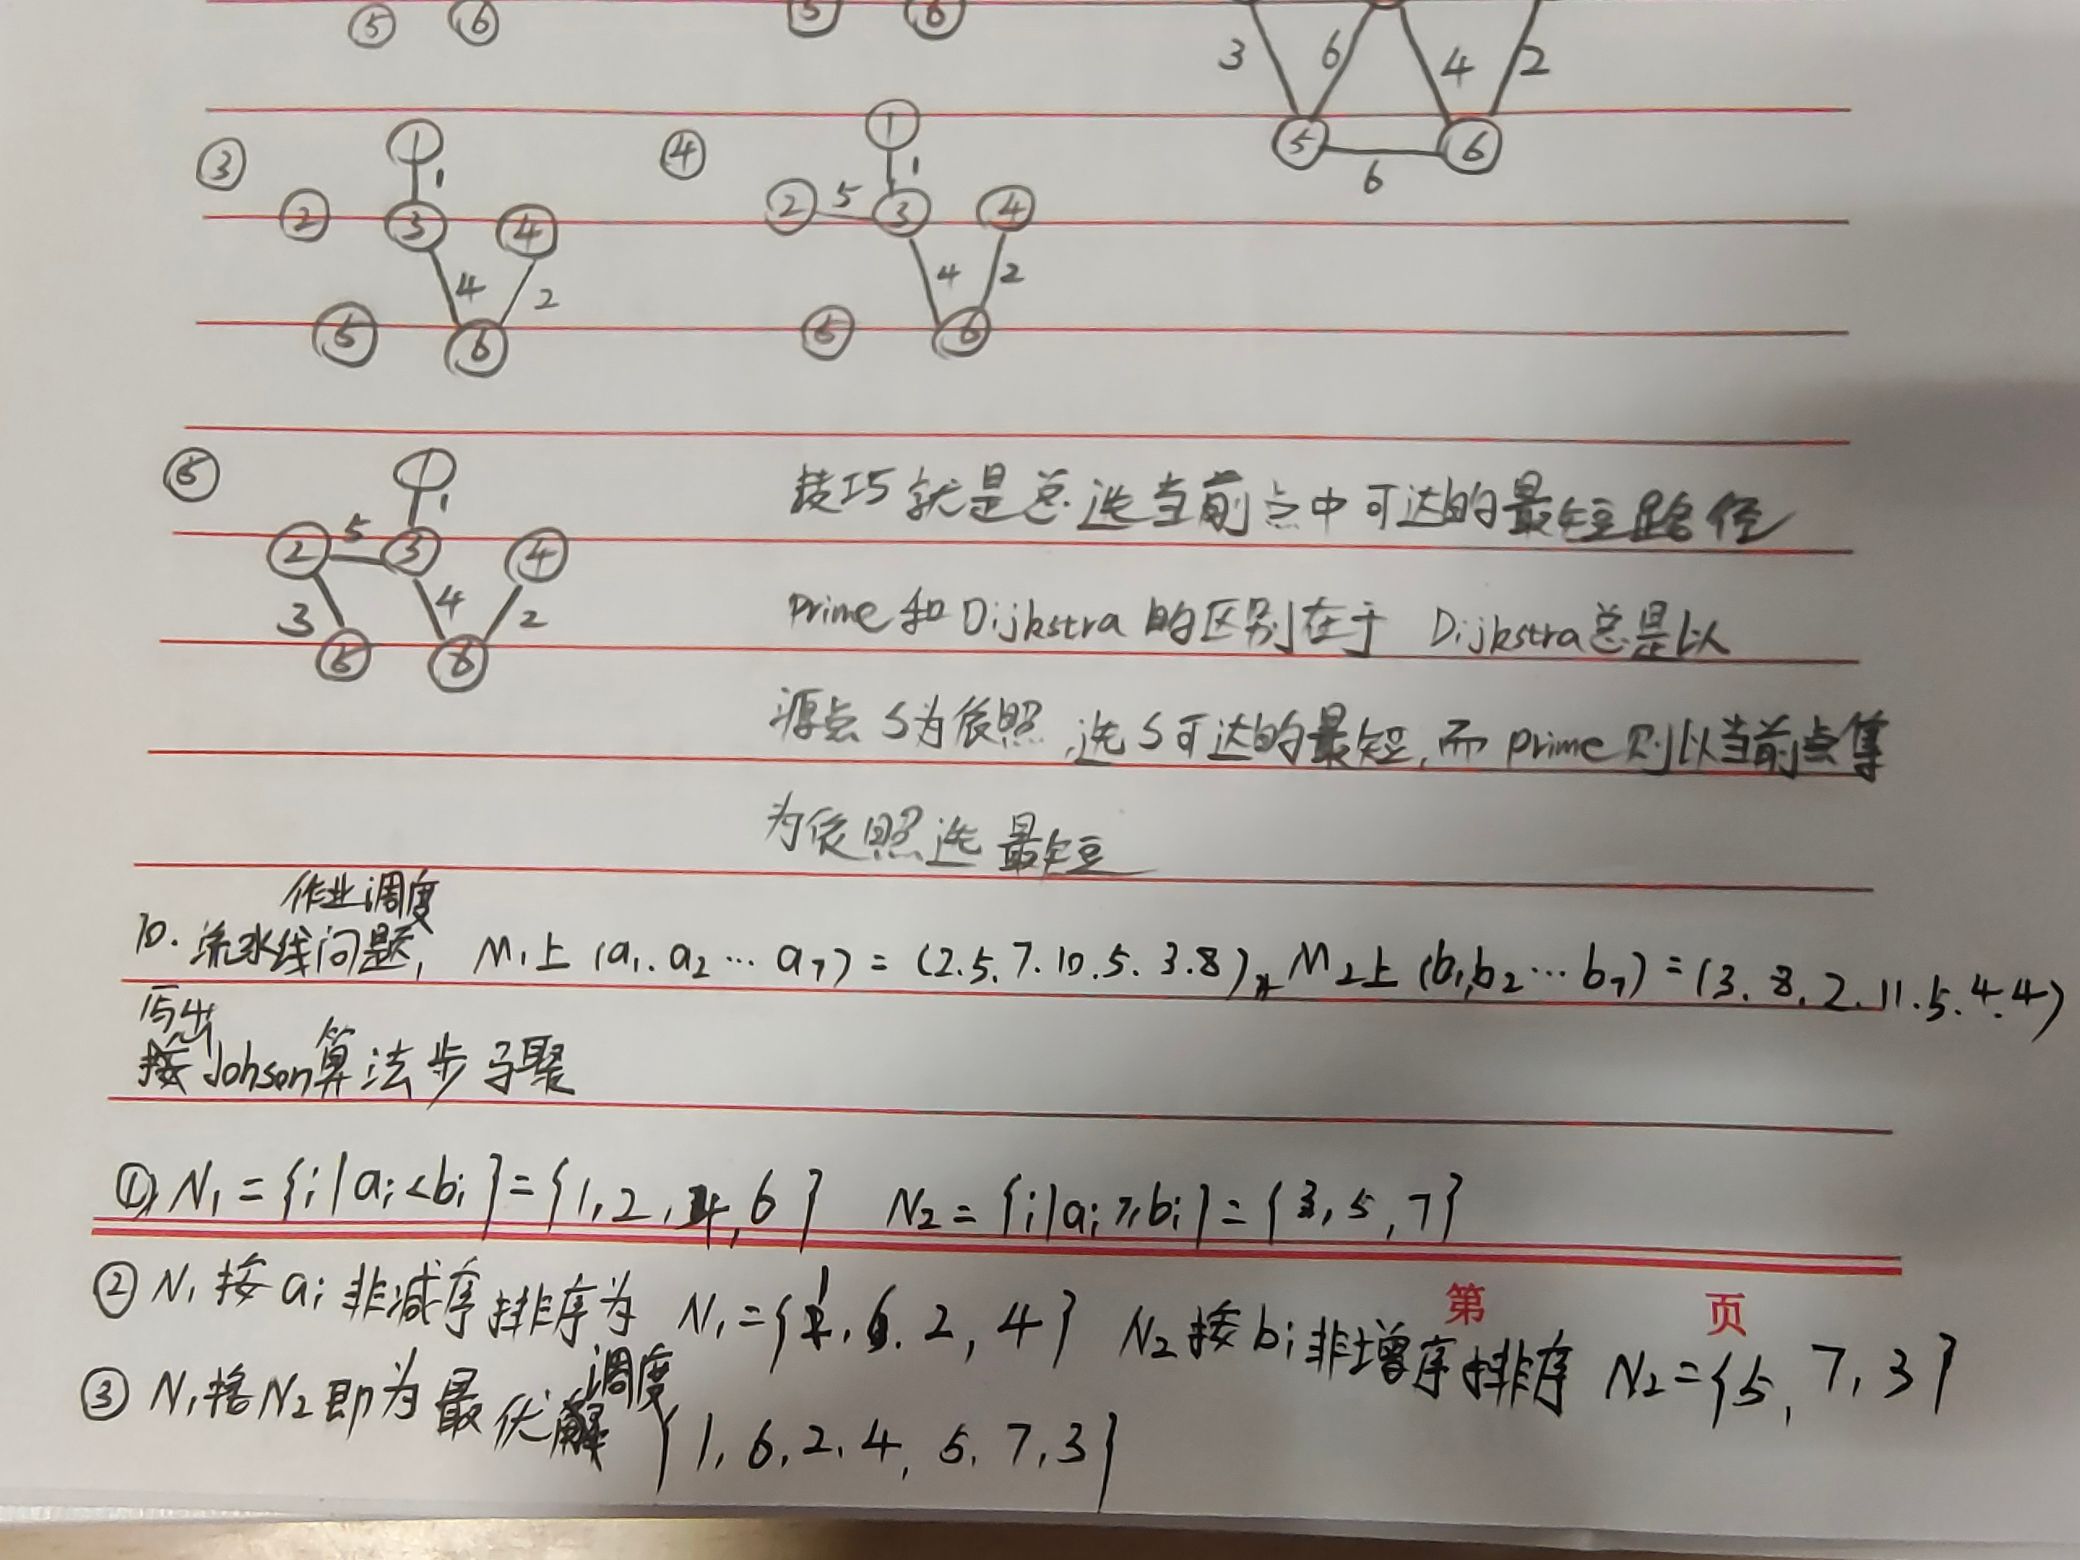 ⑤ ⑥ ⑤ ⑥
3 6 4 2
⑤ ⑥
6
③ ① 1
② ③ ④
4 2
⑤ ⑥
④ ① 1
② 5 ③ ④
4 2
⑤ ⑥
⑤ ① 1
② 5 ③ ④
3 4 2
⑤ ⑥
技巧就是总选当前点中可达的最短路径
Prime和Dijkstra的区别在于 Dijkstra总是以
源点S为依照,选S可达的最短,而prime则以当前点集
为依照选最短
作业调度
10. 流水线问题, M₁上(a₁.a₂…a₇)=(2.5.7.10.5.3.8), M₂上(b₁,b₂…b₇)=(3.8.2.11.5.4.4)
写出
按Johson算法步骤
① N₁={i|aᵢ<bᵢ}={1,2,4,6} N₂={i|aᵢ≥bᵢ}={3,5,7}
② N₁按aᵢ非减序排序为 N₁={1,6.2,4} N₂按bᵢ非增序排序 N₂={5,7,3}
第 页
③ N₁接N₂即为最优调度 {1,6,2.4,5.7,3}